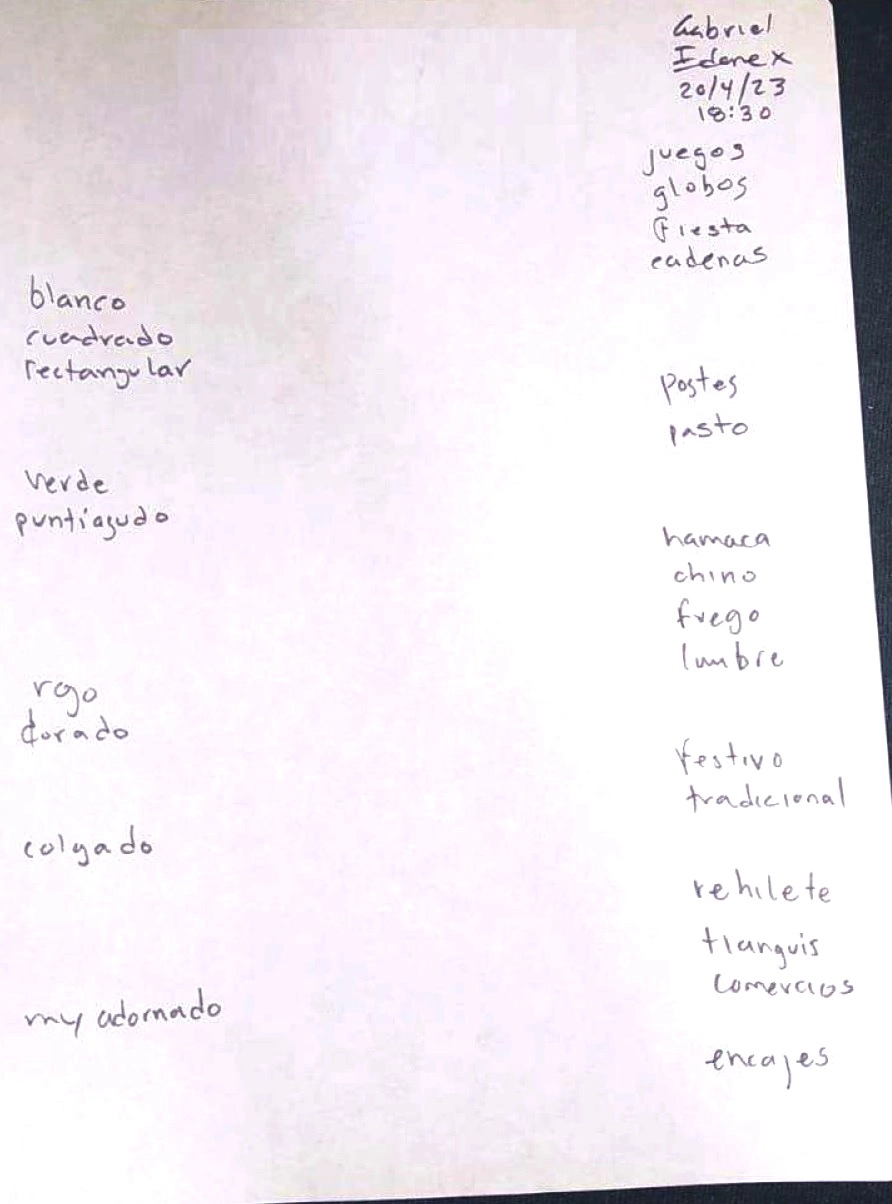 Gabriel
Idenex
20/4/23
18:30
juegos
globos
fiesta
cadenas
blanco
cuadrado
rectangular
postes
pasto
verde
puntiagudo
hamaca
chino
fuego
lumbre
rojo
dorado
festivo
tradicional
colgado
rehilete
tianguis
comercios
muy adornado
encajes